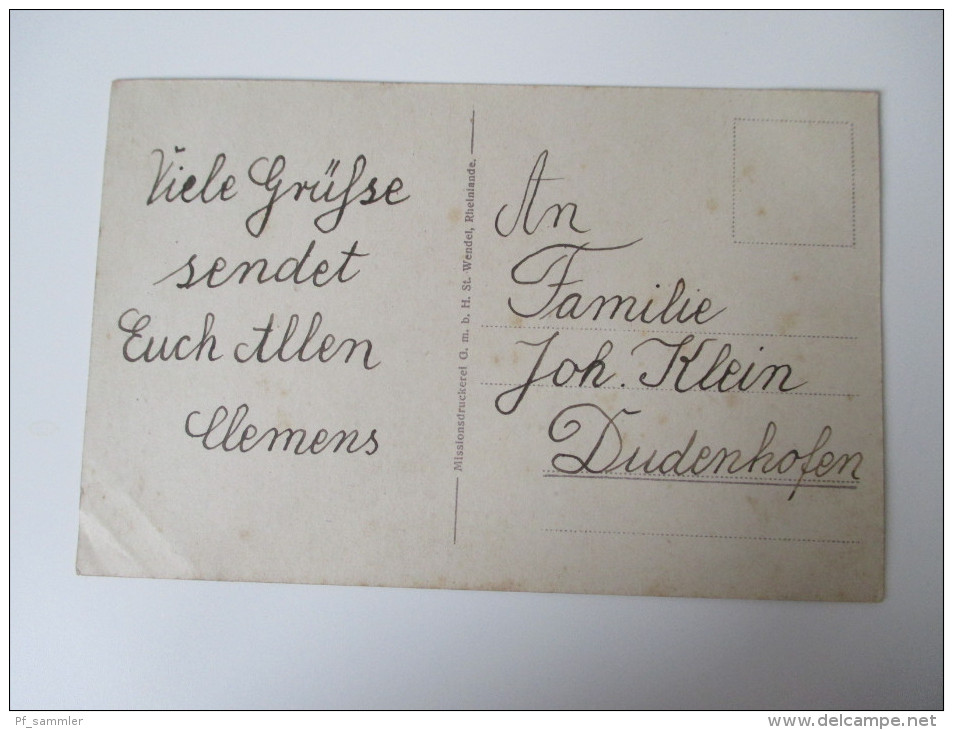 Viele Grüsse
sendet
Euch Allen
Clemens
Missionsdruckerei G. m. b. H. St. Wendel, Rheinlande.
An
Familie
Joh. Klein
Dudenhofen
Pf_sammler
www.delcampe.net